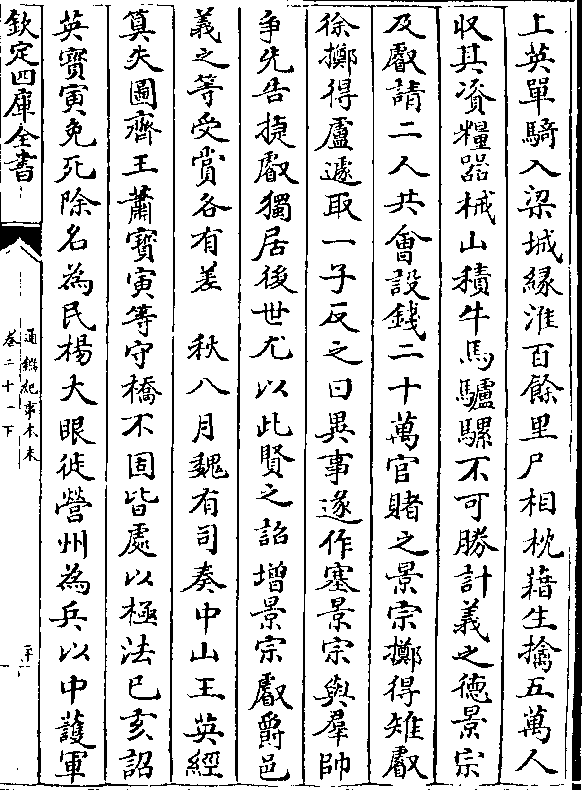 上英單騎入梁城緣淮百餘里尸相枕藉生擒五萬人
収其資糧器械山積牛馬驢騾不可勝計義之德景宗
及叡請二人共會設錢二十萬官賭之景宗擲得雉叡
徐擲得盧遽取一子反之曰異事遂作塞景宗與羣帥
争先告捷叡獨居後世尤以此賢之詔增景宗叡爵邑
義之等受賞各有差　秋八月魏有司奏中山王英經
筭失圖齊王蕭寳寅等守橋不固皆處以極法己亥詔
英寳寅免死除名為民楊大眼徙營州為兵以中護軍
欽定四庫全書
通鑑紀事本末
卷二十一下